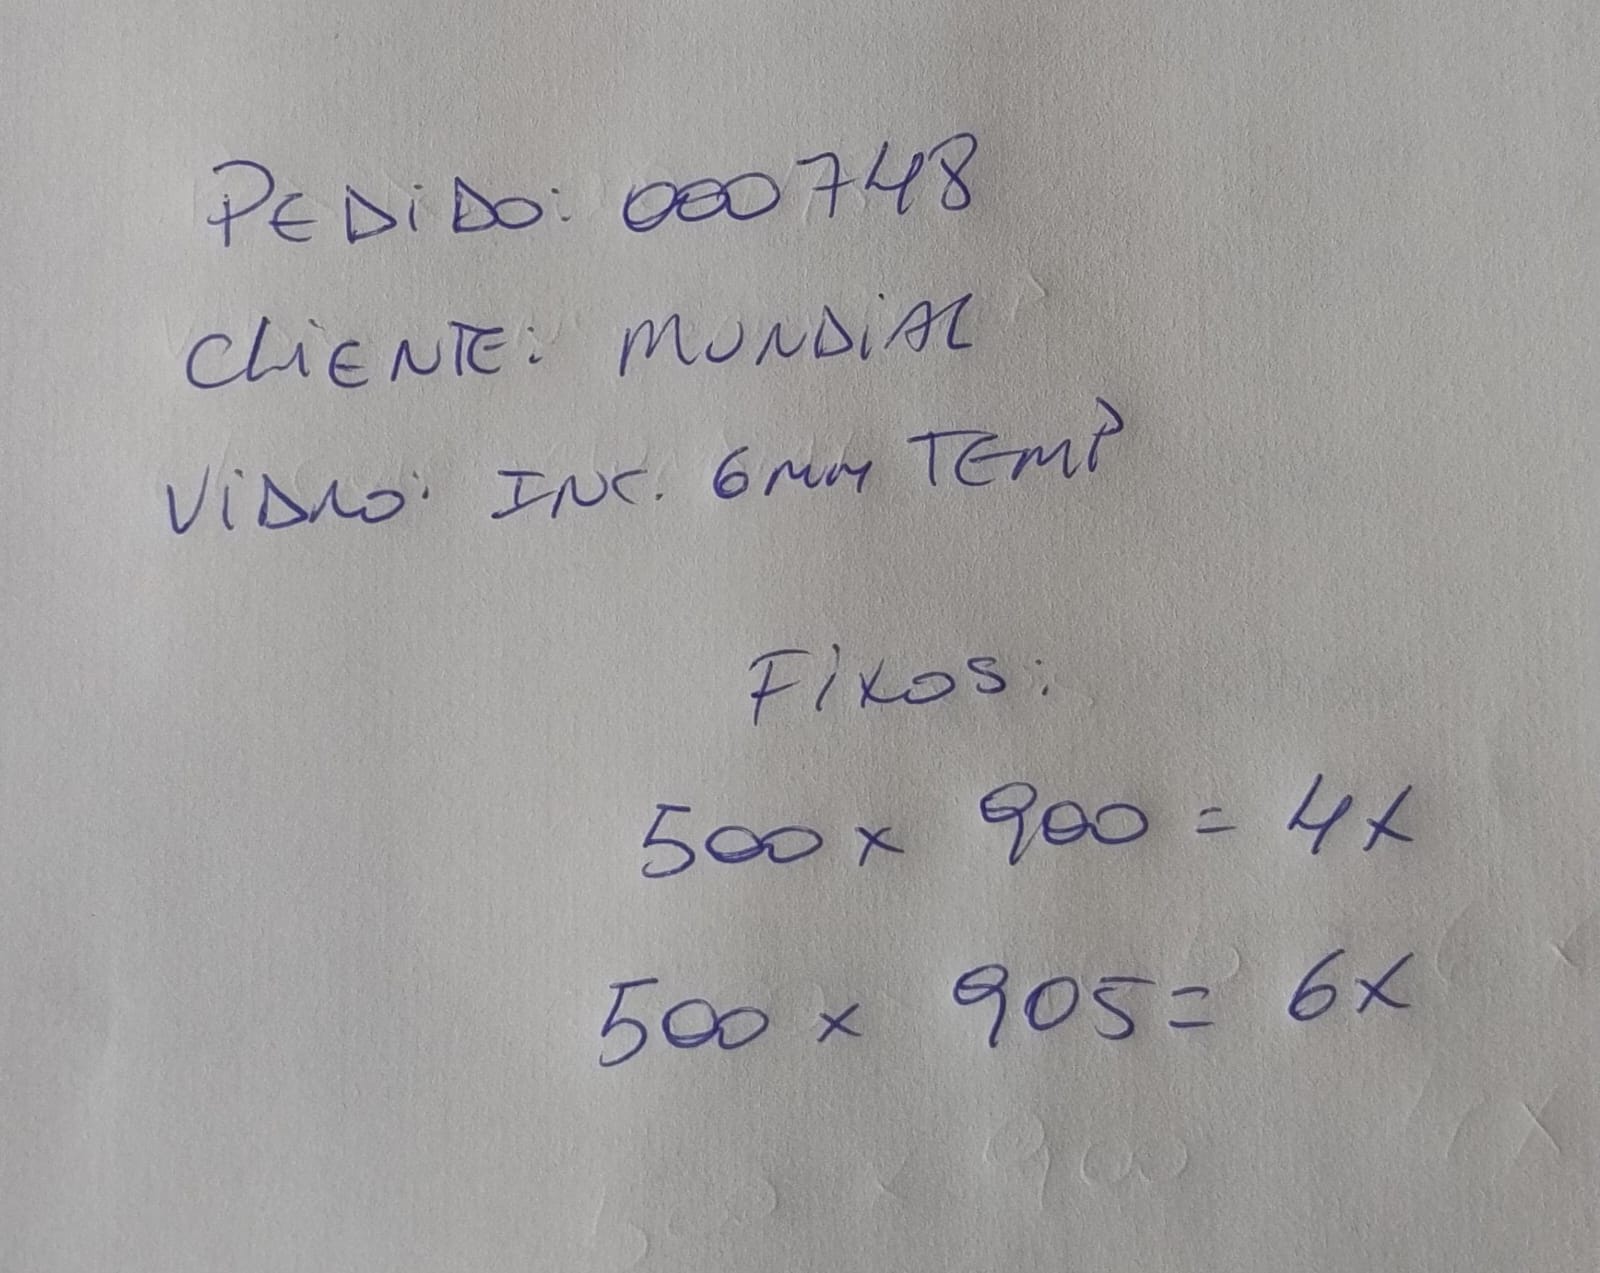 PEDiDO: 000748
CLiENTE: MUNDiAL
ViDRO: INC. 6mm TEMP
FiXOS:
500 x 900 = 4x
500 x 905 = 6x